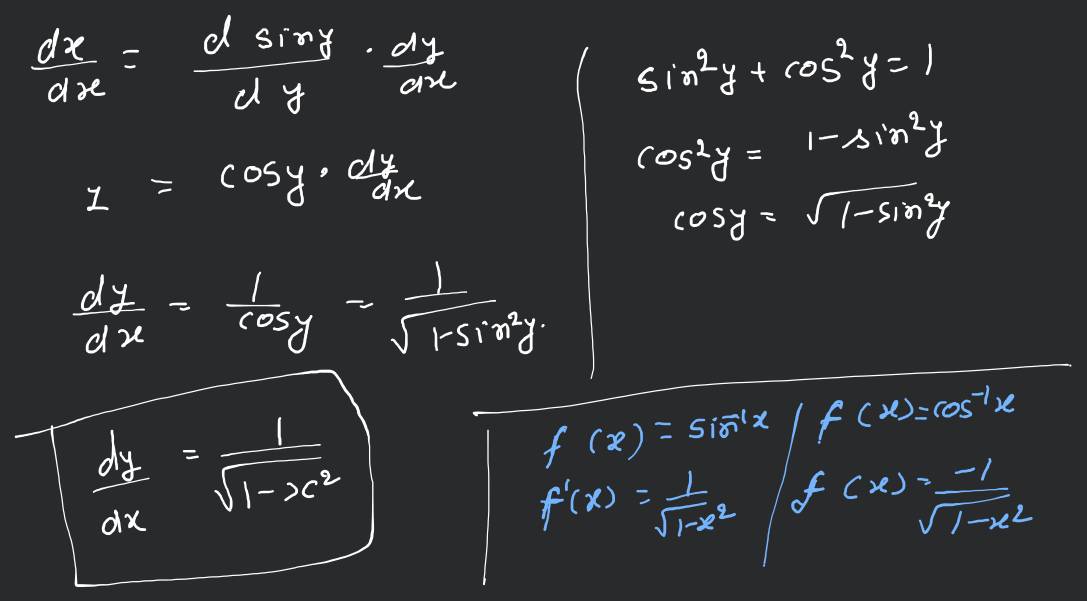 dx/dx = d siny/dy · dy/dx
1 = cosy · dy/dx
dy/dx = 1/cosy = 1/√1-sin²y.
dy/dx = 1/√1-x²
sin²y + cos²y = 1
cos²y = 1-sin²y
cosy = √1-sin²y
f(x) = sin⁻¹x / f(x) = cos⁻¹x
f'(x) = 1/√1-x² / f(x) = -1/√1-x²